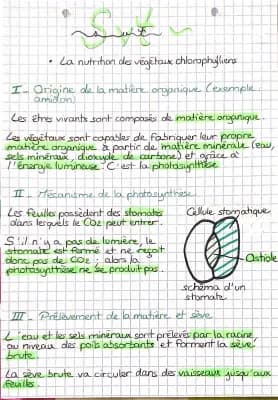 Svt
• La nutrition des végétaux chlorophylliens
I - Origine de la matière organique (exemple: amidon)
Les êtres vivants sont composés de matière organique.
Les végétaux sont capables de fabriquer leur propre
matière organique à partir de matière minérale (eau,
sels minéraux, dioxyde de carbone) et grâce à
l'énergie lumineuse. C'est la photosynthèse
II - Mécanisme de la photosynthèse
Les feuilles possèdent des stomates
dans lequels le CO2 peut entrer.
S'il n'y a pas de lumière, le
stomate est fermé et ne reçoit
donc pas de CO2 ; alors la
photosynthèse ne se produit pas.
Cellule stomatique
Ostiole
schéma d'un
stomate
III - Prélèvement de la matière et sève
L'eau et les sels minéraux sont prélevés par la racine
au niveau des poils absorbants et forment la sève
brute.
La sève brute va circuler dans des vaisseaux jusqu'aux
feuilles.